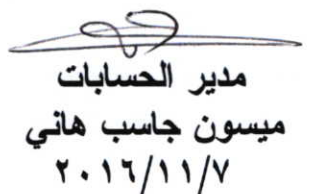 مدير الحسابات
ميسون جاسب هاني
٢٠١٦/١١/٧